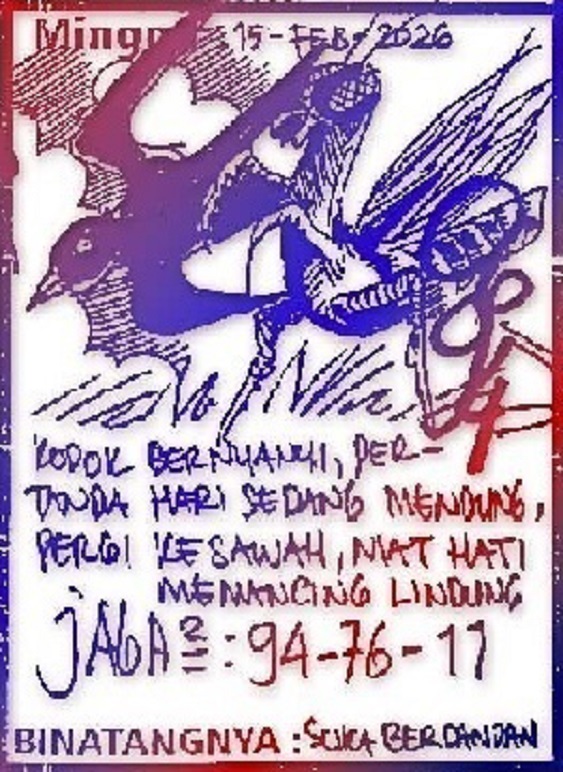 Minggu 15-FEB-2026
KODOK BERNYANYI, PER-
TANDA HARI SEDANG MENDUNG,
PERGI KE SAWAH, NIAT HATI
MEMANCING LINDUNG
JAGA2=: 94-76-17
BINATANGNYA : SUKA BERDANDAN